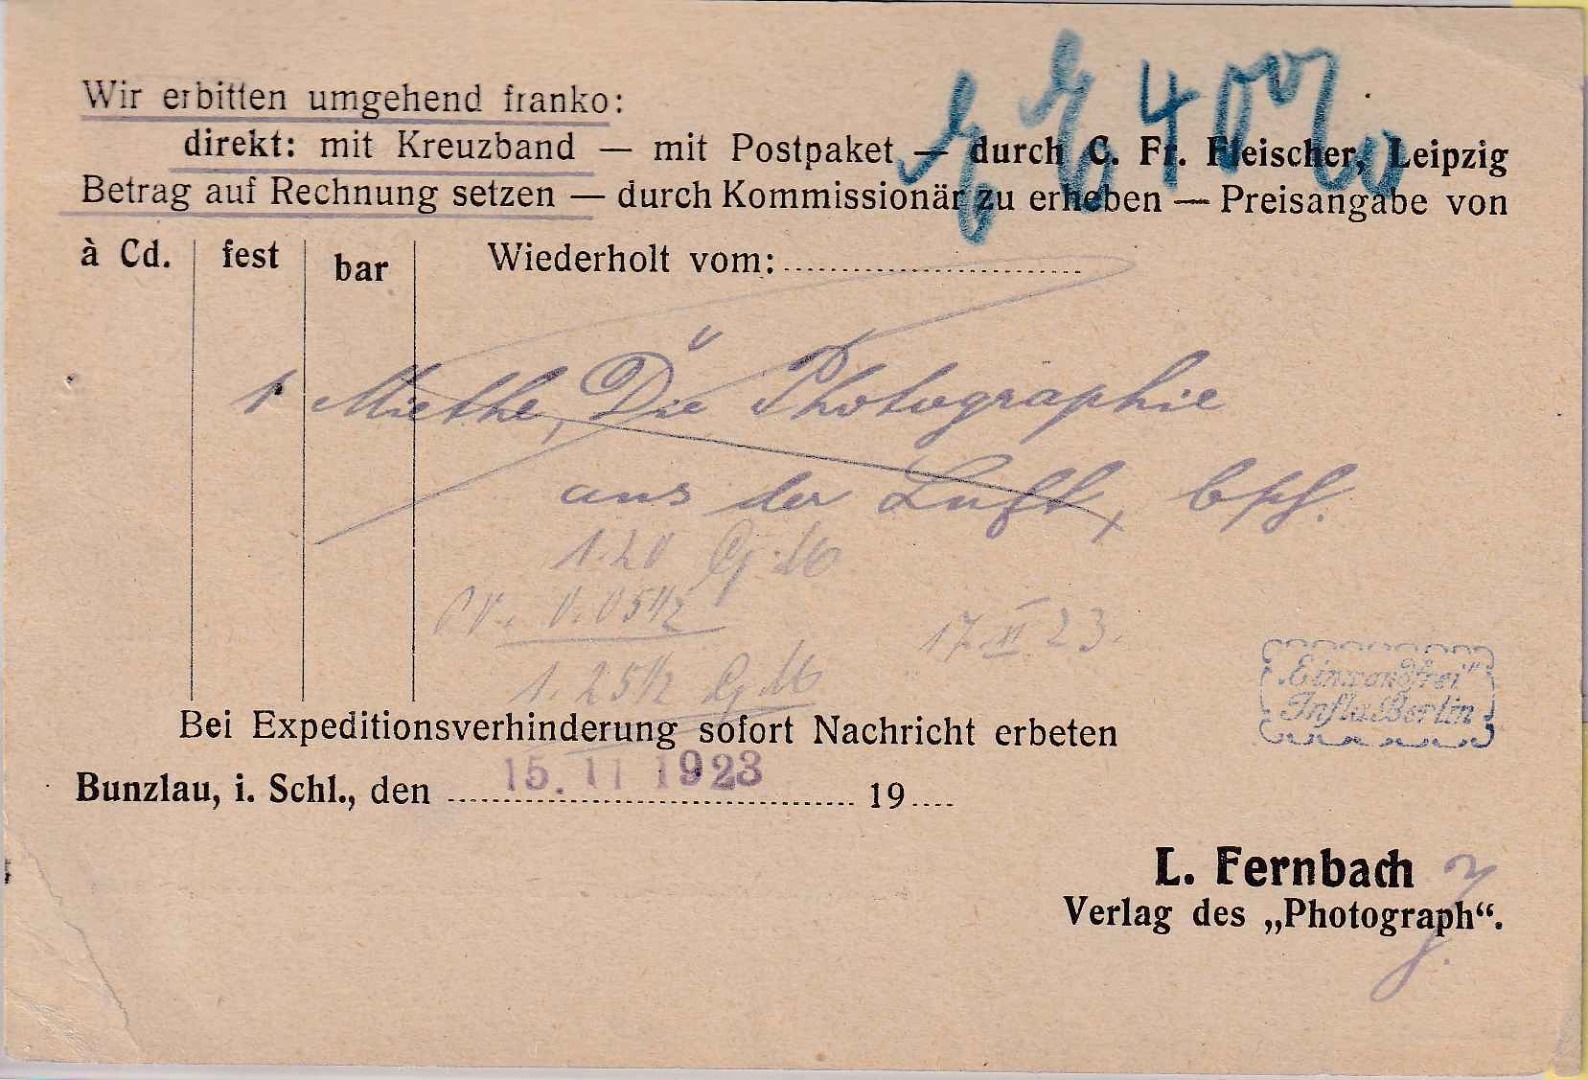 Wir erbitten umgehend franko:
direkt: mit Kreuzband — mit Postpaket — durch C. Fr. Fleischer, Leipzig
Betrag auf Rechnung setzen — durch Kommissionär zu erheben — Preisangabe von
à Cd. fest bar Wiederholt vom:
1 Miethe, Die Photographie
aus der Luft,
1.20
0.05 1/2
17. XI 23.
1.25 1/2
"Einwandfrei"
Infla Berlin
Bei Expeditionsverhinderung sofort Nachricht erbeten
Bunzlau, i. Schl., den 15. 11 1923 19
L. Fernbach
Verlag des „Photograph“.